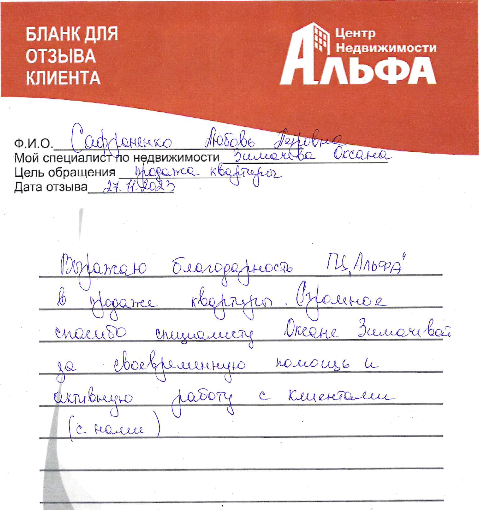 БЛАНК ДЛЯ
ОТЗЫВА
КЛИЕНТА
Центр
Недвижимости
АЛЬФА
Ф.И.О. Сафраненко Любовь Петровна
Мой специалист по недвижимости Зимачева Оксана
Цель обращения продажа квартиры
Дата отзыва 27.11.2023
Выражаю благодарность "Альфа"
в продаже квартиры. Огромное
спасибо специалисту Оксане Зимачевой
за своевременную помощь и
активную работу с клиентами
(с нами)